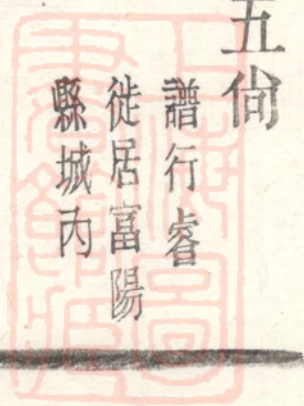 五尙
譜行睿
徙居富陽
縣城內